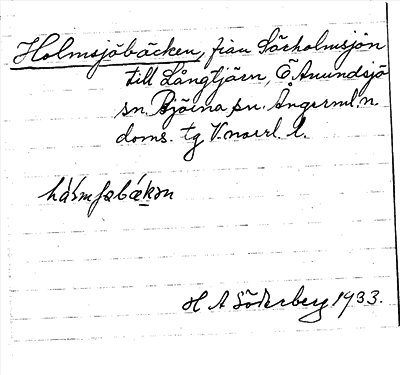 Holmsjöbäcken, från Sörholmsjön
till Långtjärn, Ö Anundsjö
sn. Björna sn. Ångerml. n.
doms. tg V. norrl. l.
hål'mʃøbækən
H A Söderberg 1933.